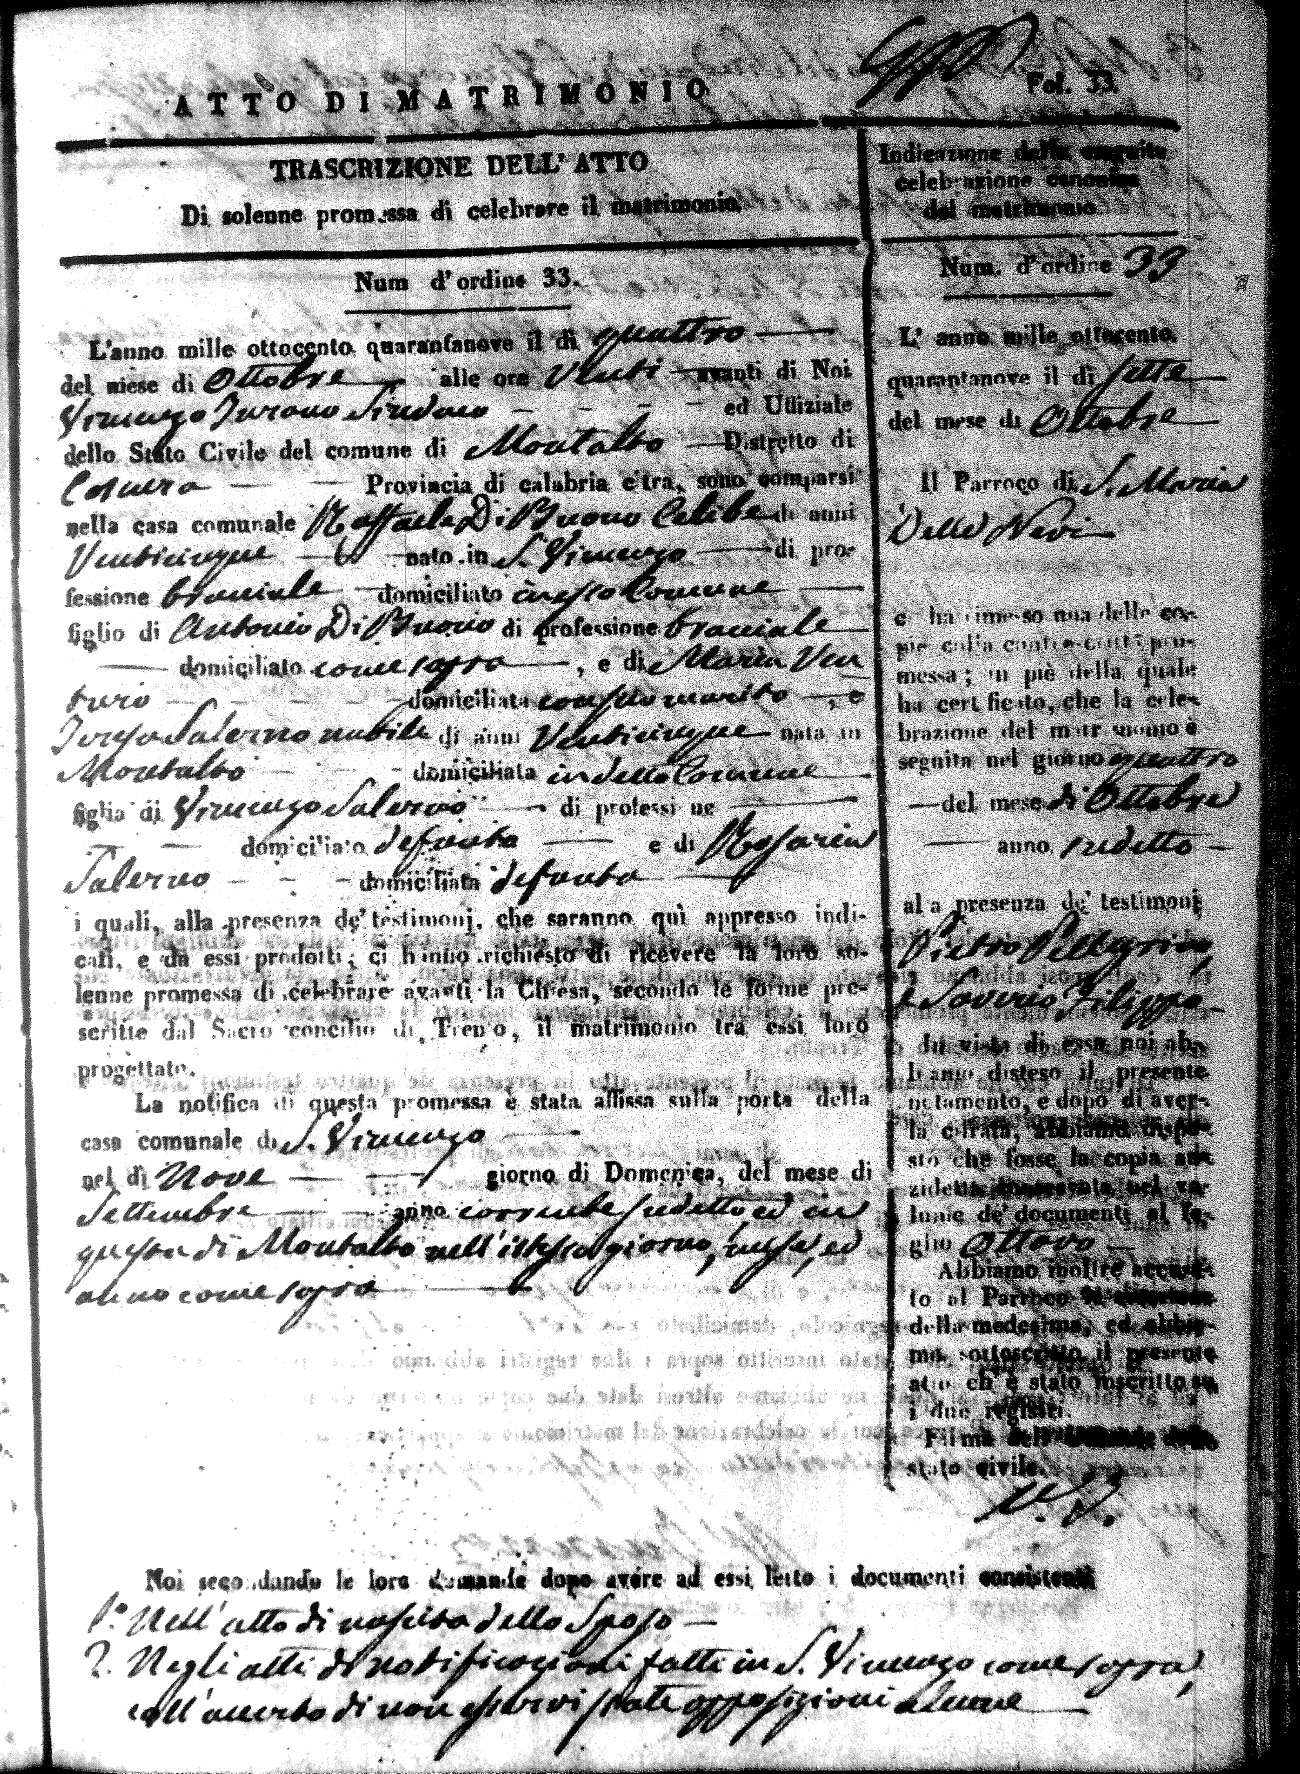 ATTO DI MATRIMONIO
Fol. 33.
TRASCRIZIONE DELL' ATTO
Di solenne promessa di celebrare il matrimonio.
Num d'ordine 33.
L'anno mille ottocento quarantanove il di quattro
del mese di Ottobre alle ore Venti avanti di Noi
Vincenzo Turano Sindaco ed Uffiziale
dello Stato Civile del comune di Montalto Distretto di
Cosenza Provincia di calabria citra, sono comparsi
nella casa comunale Raffaele Di Buono Celibe di anni
Venticinque nato in S. Vincenzo di pro-
fessione bracciale domiciliato in esso Comune
figlio di Antonio Di Buono di professione bracciale
domiciliato come sopra, e di Maria Ven
turio domiciliata con suo marito, e
Salerno nubile di anni Venticinque nata in
Montalto domiciliata in detto Comune
figlia di Vincenzo Salerno di professione
domiciliato defunto e di Rosaria
Salerno domiciliata defunta
i quali, alla presenza de' testimonj, che saranno quì appresso indi-
cati, e da essi prodotti; ci hanno richiesto di ricevere la loro so-
lenne promessa di celebrare avanti la Chiesa, secondo le forme pre-
scritte dal Sacro concilio di Trento, il matrimonio tra essi loro
progettato.
La notifica di questa promessa è stata affissa sulla porta della
casa comunale di S. Vincenzo
nel dì Nove giorno di Domenica, del mese di
Settembre anno corrente sudetto, ed in
questa di Montalto nell'istesso giorno, mese, ed
anno come sopra
Indicazione della seguita
celebrazione canonica
del matrimonio.
Num. d'ordine 33
L' anno mille ottocento
quarantanove il di sette
del mese di Ottobre
Il Parroco di S. Maria
Delle Nevi
ci ha rimesso una delle co-
pie della controscritta pro-
messa; in piè della quale
ha certificato, che la cele-
brazione del matrimonio è
seguita nel giorno quattro
del mese di Ottobre
anno sudetto
alla presenza de' testimonj
Pietro Pellegrino,
e Saverio Filippo
In vista di essa noi ab-
biamo disteso il presente
notamento, e dopo di aver-
la cifrata, abbiamo dispo-
sto che fosse la copia an-
zidetta conservata nel vo-
lume de' documenti al fo-
glio Ottavo
Abbiamo inoltre accusa-
to al Parroco la ricezione
della medesima, ed abbia-
mo sottoscritto il presente
atto ch' è stato inscritto su
i due registri.
Firma dell'
stato civile.
V. T.
Noi secondando le loro domande dopo avere ad essi letto i documenti consistenti
1.° Nell'atto di nascita dello Sposo
2. Negli atti di notificazioni fatti in S. Vincenzo come sopra,
coll'accerto di non esservi state opposizioni alcune